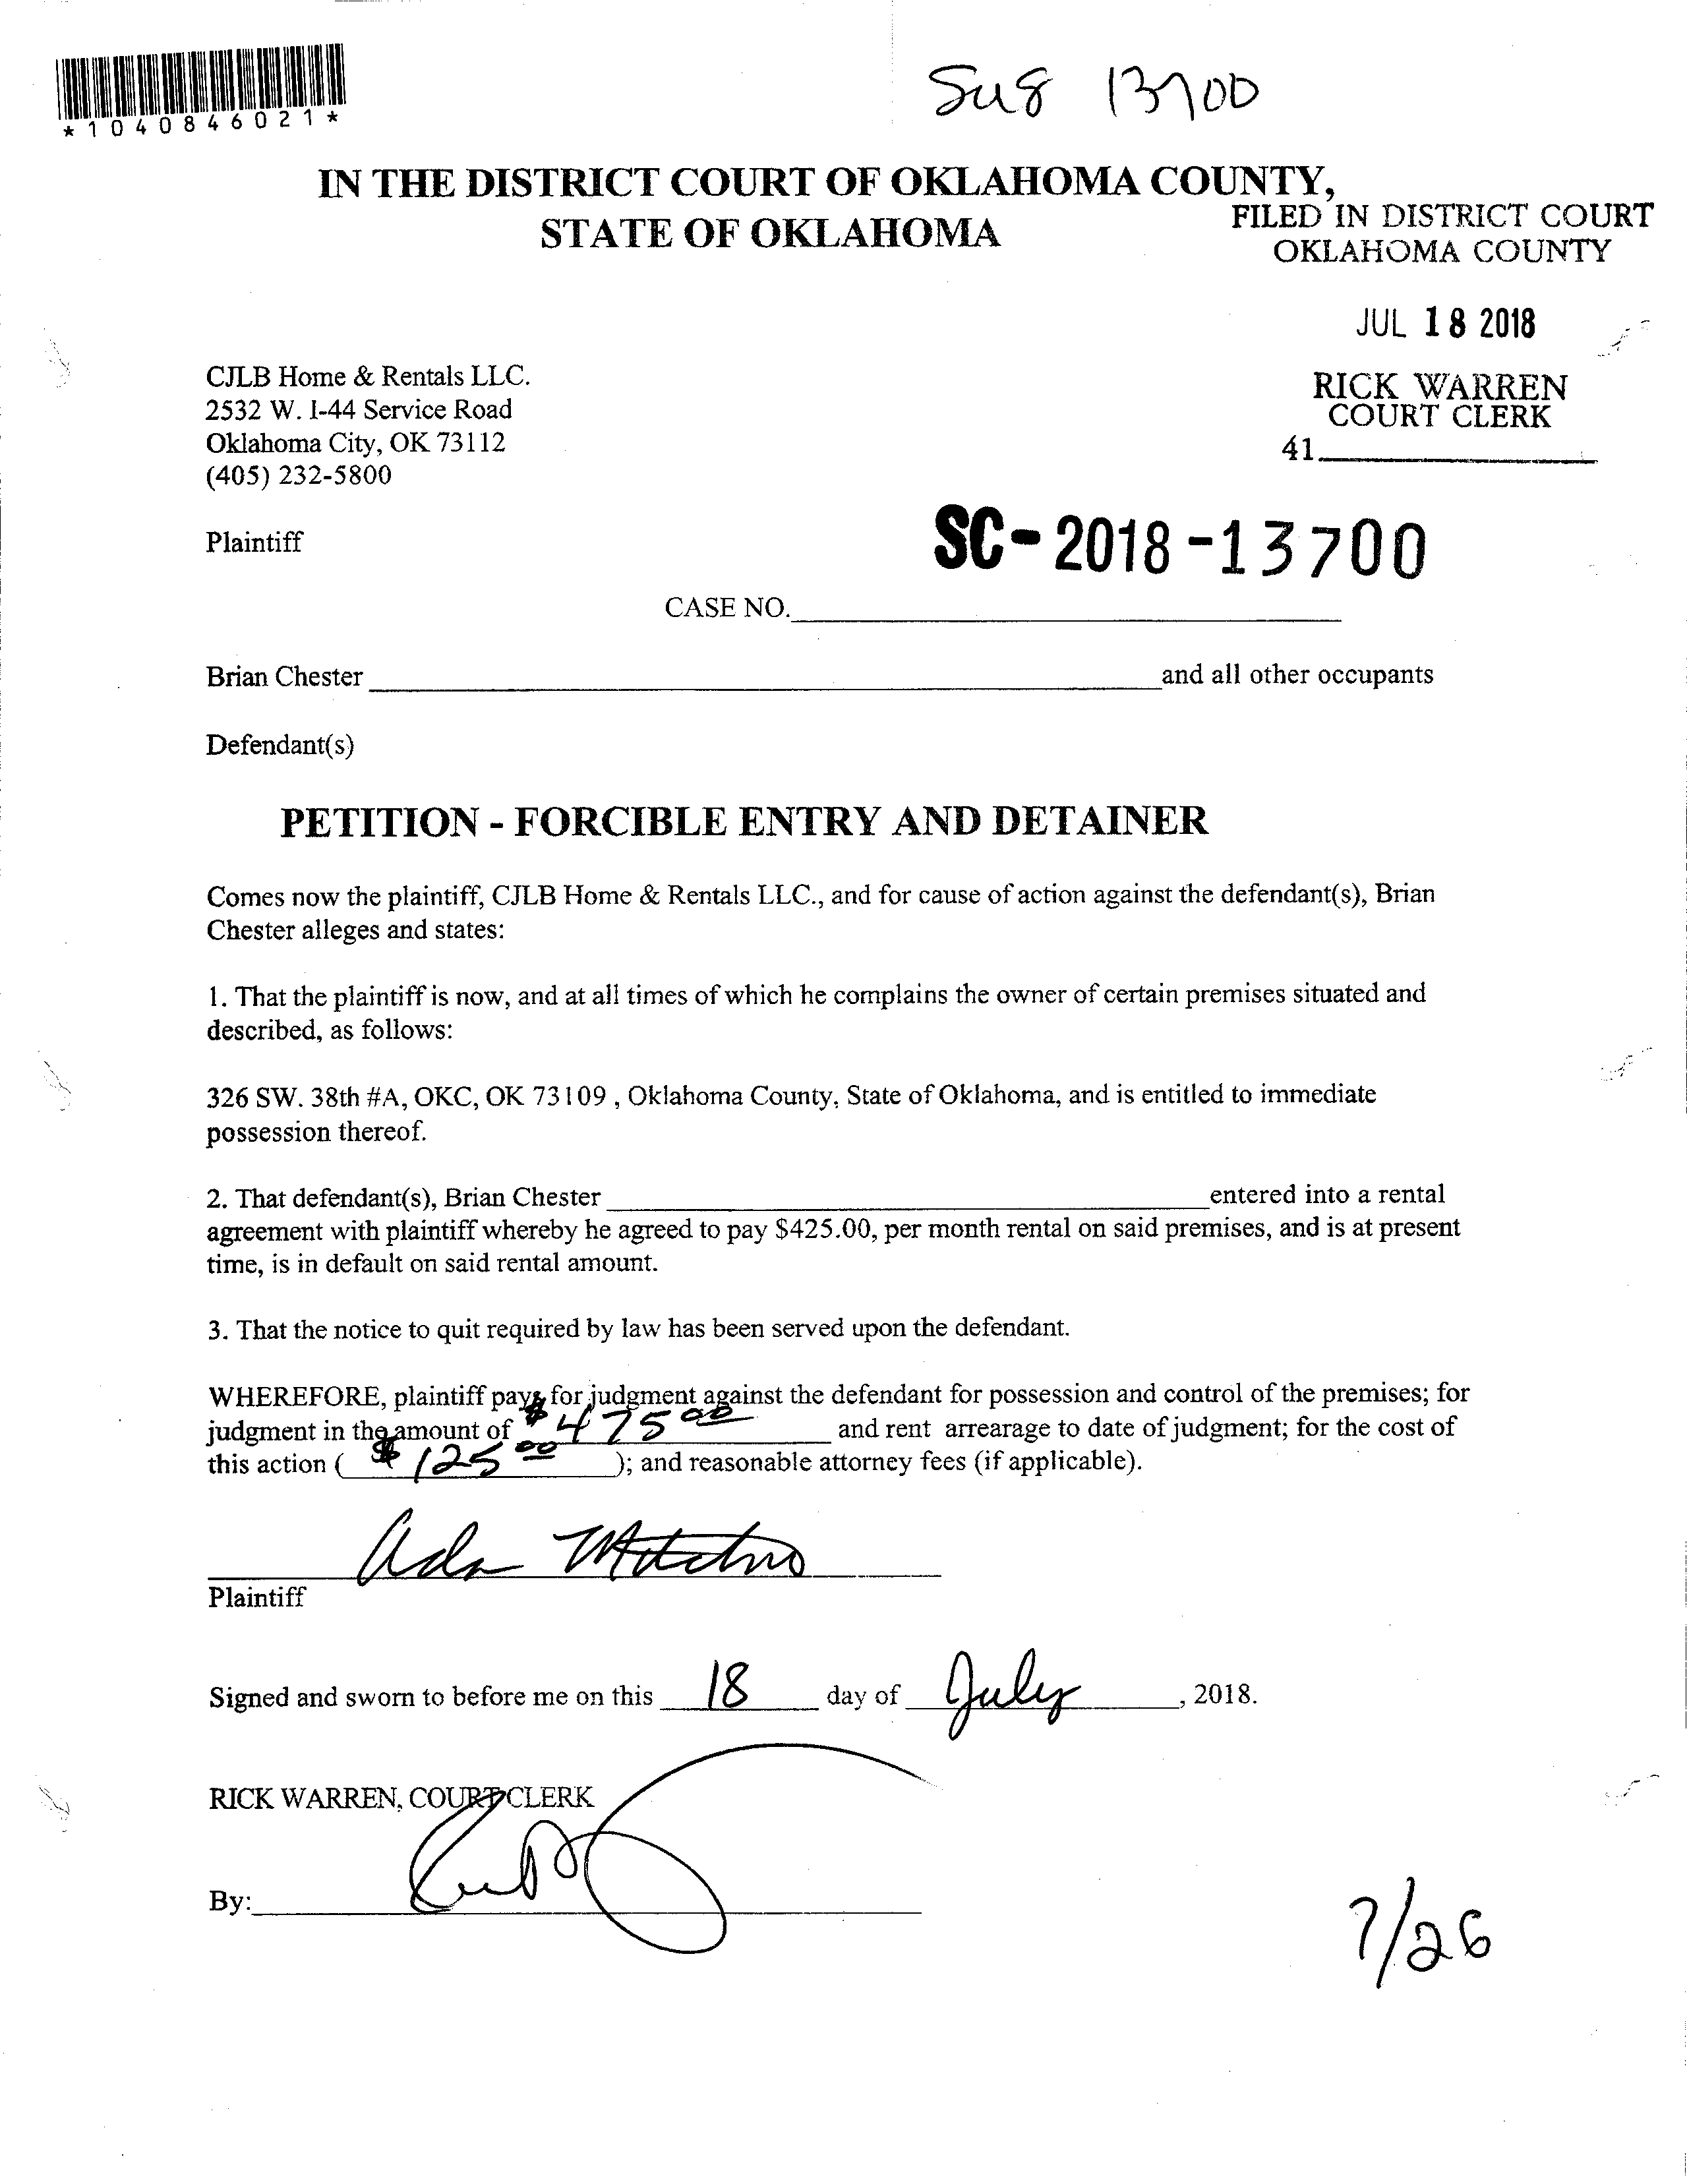 *1040846021*
13700
IN THE DISTRICT COURT OF OKLAHOMA COUNTY,
STATE OF OKLAHOMA
FILED IN DISTRICT COURT
OKLAHOMA COUNTY
JUL 18 2018
RICK WARREN
COURT CLERK
41
CJLB Home & Rentals LLC.
2532 W. I-44 Service Road
Oklahoma City, OK 73112
(405) 232-5800
Plaintiff
SC-2018-13700
CASE NO.
Brian Chester and all other occupants
Defendant(s)
PETITION - FORCIBLE ENTRY AND DETAINER
Comes now the plaintiff, CJLB Home & Rentals LLC., and for cause of action against the defendant(s), Brian
Chester alleges and states:
1. That the plaintiff is now, and at all times of which he complains the owner of certain premises situated and
described, as follows:
326 SW. 38th #A, OKC, OK 73109 , Oklahoma County, State of Oklahoma, and is entitled to immediate
possession thereof.
2. That defendant(s), Brian Chester entered into a rental
agreement with plaintiff whereby he agreed to pay $425.00, per month rental on said premises, and is at present
time, is in default on said rental amount.
3. That the notice to quit required by law has been served upon the defendant.
WHEREFORE, plaintiff pays for judgment against the defendant for possession and control of the premises; for
judgment in the amount of $475.00 and rent arrearage to date of judgment; for the cost of
this action ( $125.00 ); and reasonable attorney fees (if applicable).
Plaintiff
Signed and sworn to before me on this 18 day of July, 2018.
RICK WARREN, COURT CLERK
By:
7/26